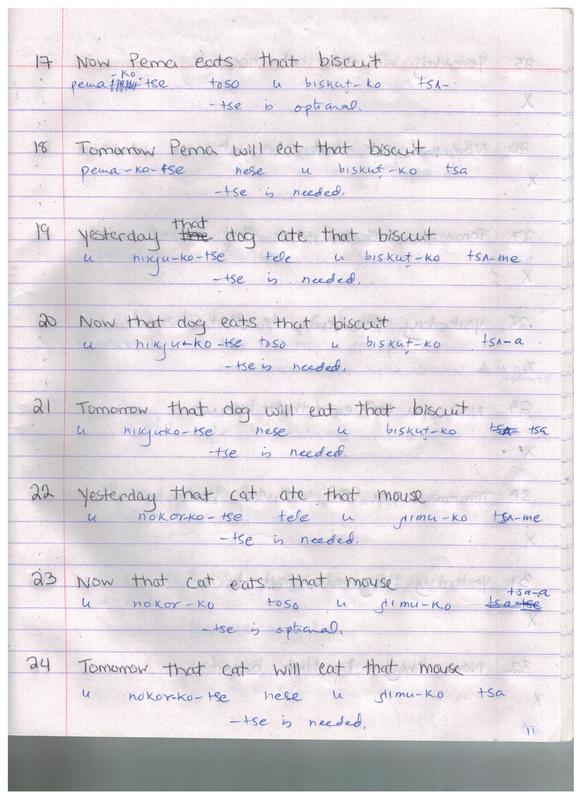 17 Now Pema eats that biscuit
-ko
pema -tse toso u biskuṭ-ko tsʌ-
-tse is optional.
18 Tomorrow Pema will eat that biscuit.
pema-ko-tse nese u biskuṭ-ko tsa
-tse is needed.
19 Yesterday that dog ate that biscuit
u nikju-ko-tse tele u biskuṭ-ko tsʌ-me
-tse is needed.
20 Now that dog eats that biscuit
u nikju-ko-tse toso u biskuṭ-ko tsʌ-a
-tse is needed.
21 Tomorrow that dog will eat that biscuit
u nikju-ko-tse nese u biskuṭ-ko tsa
-tse is needed.
22 Yesterday that cat ate that mouse
u nokor-ko-tse tele u ɲimu-ko tsʌ-me
-tse is needed.
23 Now that cat eats that mouse
tsa-a
u nokor-ko toso u ɲimu-ko tsa-tse
-tse is optional.
24 Tomorrow that cat will eat that mouse
u nokor-ko-tse nese u ɲimu-ko tsa
-tse is needed.